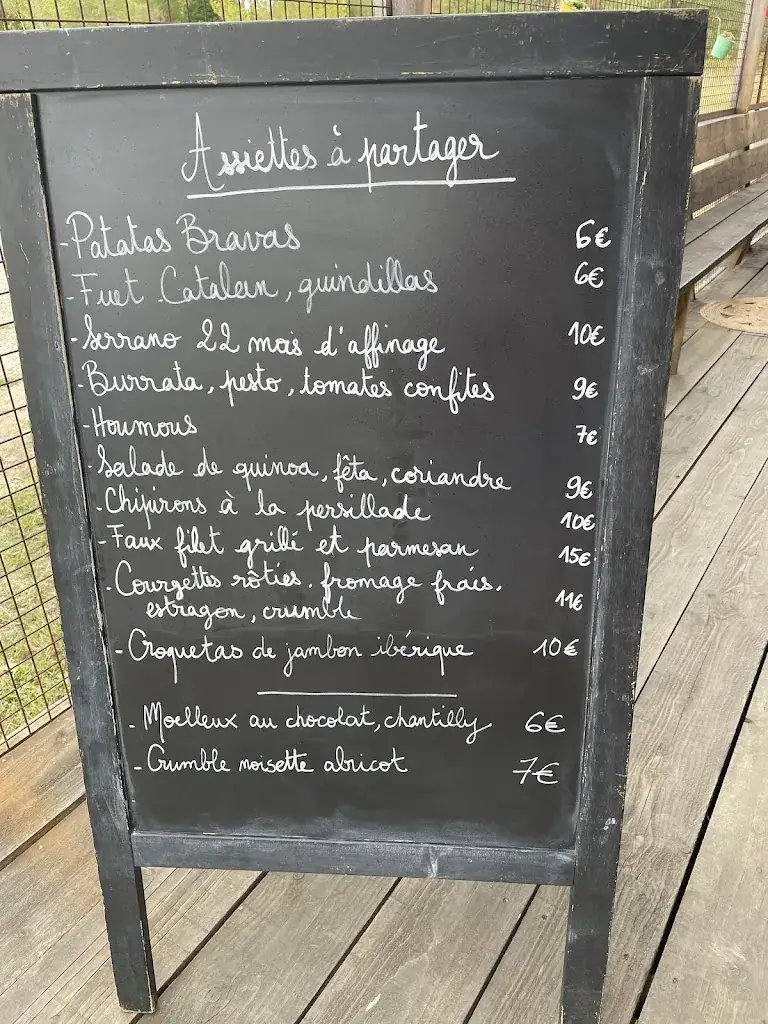 Assiettes à partager
-Patatas Bravas 6€
-Fuet Catalan, guindillas 6€
-Serrano 22 mois d'affinage 10€
-Burrata, pesto, tomates confites 9€
-Houmous 7€
-Salade de quinoa, fêta, coriandre 9€
-Chipirons à la persillade 10€
-Faux filet grillé et parmesan 15€
-Courgettes rôties, fromage frais,
estragon, crumble 11€
-Croquetas de jambon ibérique 10€
- Moelleux au chocolat, chantilly 6€
- Crumble noisette abricot 7€